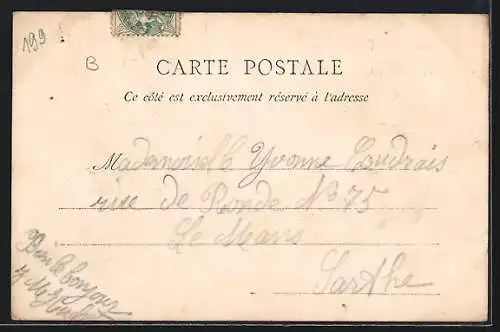 199
B
CARTE POSTALE
Ce côté est exclusivement réservé à l'adresse
Mademoiselle Yvonne Coudrais
rue de Ronde N° 75
Le Mans
Sarthe
Bien le bonjour